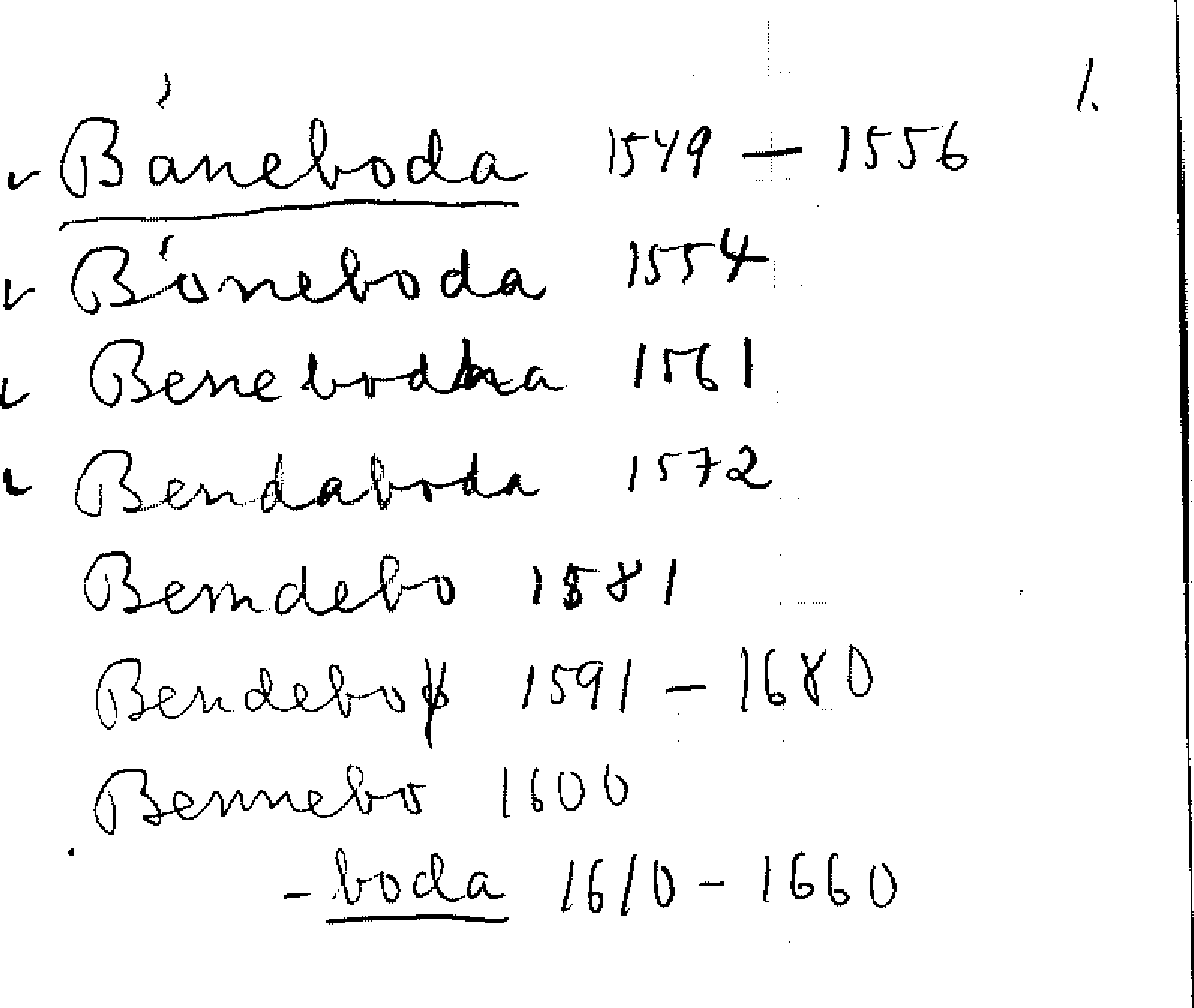 1.
Băneboda 1549 – 1556
Bóneboda 1554
Beneboda 1561
Bendaboda 1572
Bemdebo 1581
Bendebo 1591 – 1680
Bennebo 1600
- boda 1610 - 1660